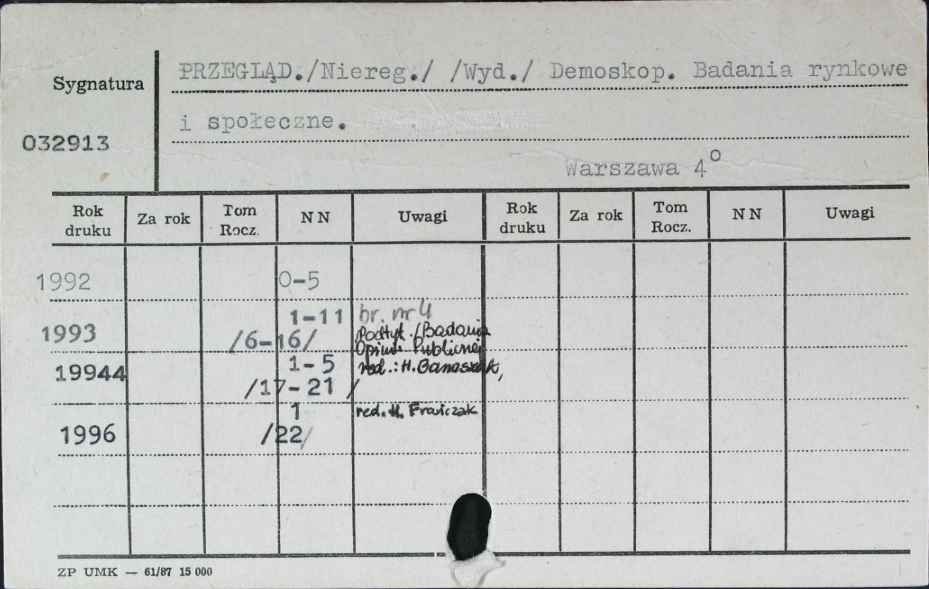 PRZEGLĄD./Niereg./ /Wyd./ Demoskop. Badania rynkowe
Sygnatura
i społeczne.
032913
Warszawa 4°
Rok druku Za rok Tom Rocz. NN Uwagi Rok druku Za rok Tom Rocz. NN Uwagi
1992 0-5
1-11 br. nr 4
1993 /6-16/ Podtyt./Badania
Opinii Publicznej
1-5 red.: H. Banaszak,
19944 /17-21 /
1 red. H. Frańczak
1996 /22/
ZP UMK — 61/87 15 000